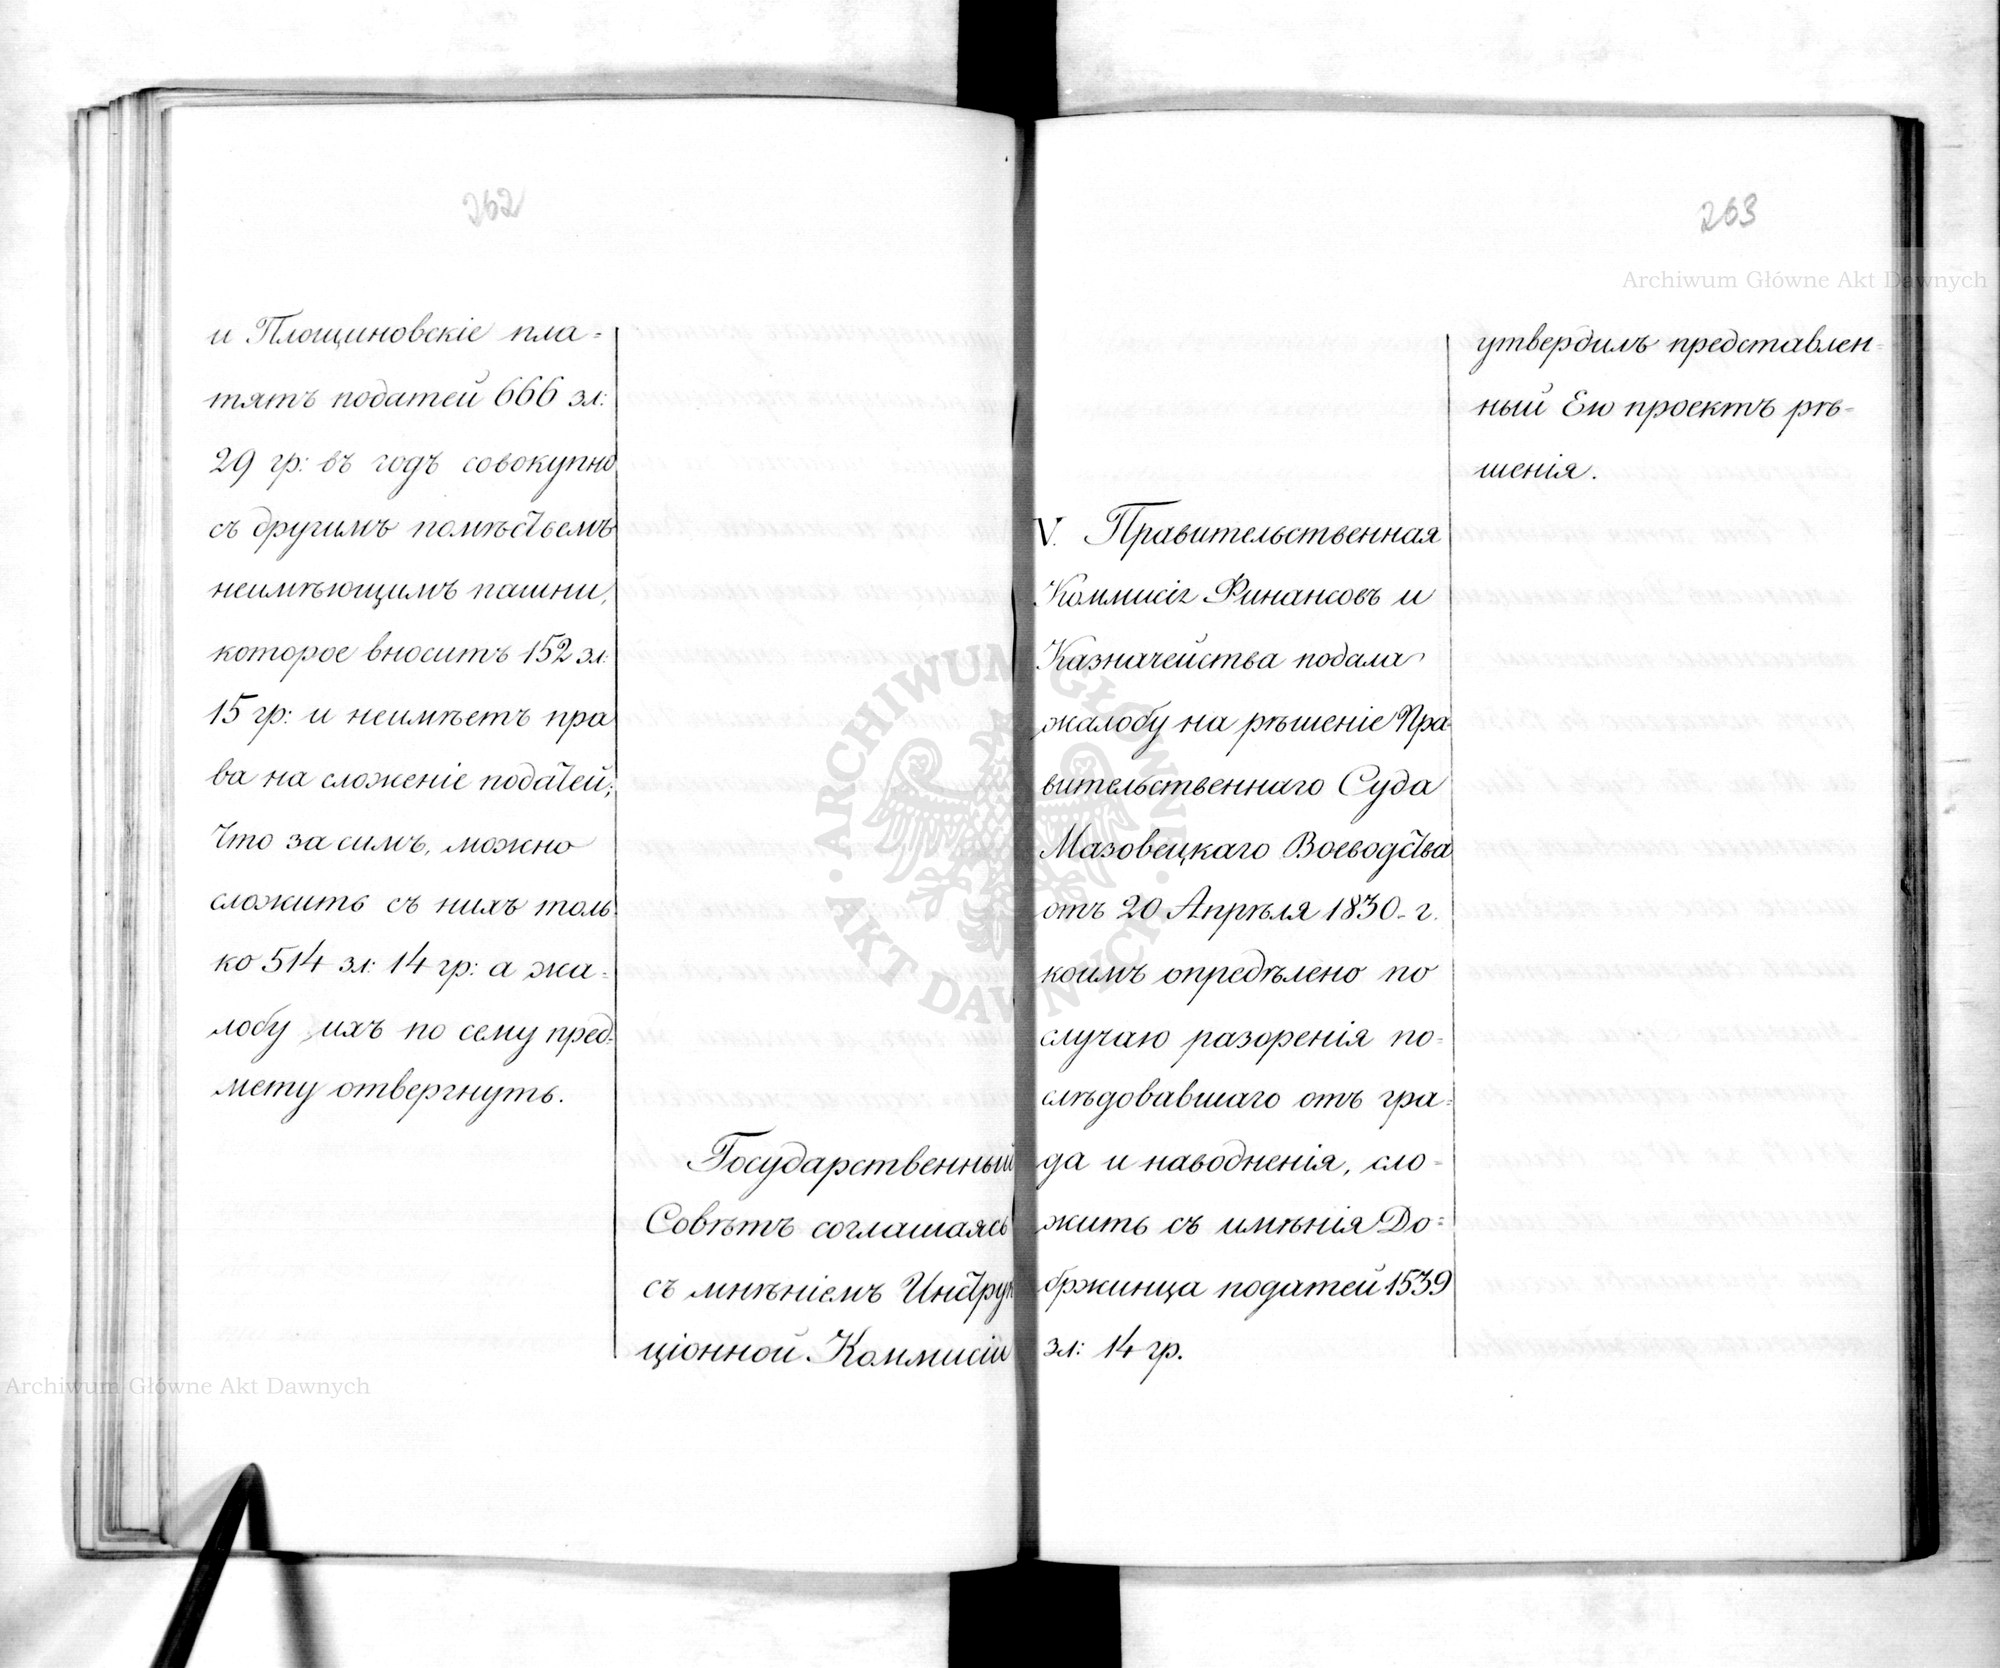 262
и Площиновскіе пла=
тятъ податей 666 зл:
29 гр: въ годъ совокупно
съ другимъ помѣстьемъ
неимѣющимъ пашни,
которое вноситъ 152 зл:
15 гр: и неимѣетъ пра
ва на сложеніе податей;
Что за симъ, можно
сложить съ нихъ толь=
ко 514 зл: 14 гр: а жа=
лобу ихъ по сему пред=
мету отвергнуть.
Государственный
Совѣтъ соглашаясь
съ мнѣніемъ Инструк
ціонной Коммисіи
263
утвердилъ представлен=
ный Ею проектъ рѣ=
шенія.
V. Правительственная
Коммисія Финансовъ и
Казначейства подала
жалобу на рѣшеніе Пра
вительственнаго Суда
Мазовецкаго Воеводства
отъ 20 Апрѣля 1830. г.
коимъ опредѣлено по
случаю разоренія по=
слѣдовавшаго отъ гра=
да и наводненія, сло=
жить съ имѣнія До=
бржинца податей 1539
зл: 14 гр.
Archiwum Główne Akt Dawnych
Archiwum Główne Akt Dawnych
ARCHIWUM GŁÓWNE
AKT DAWNYCH